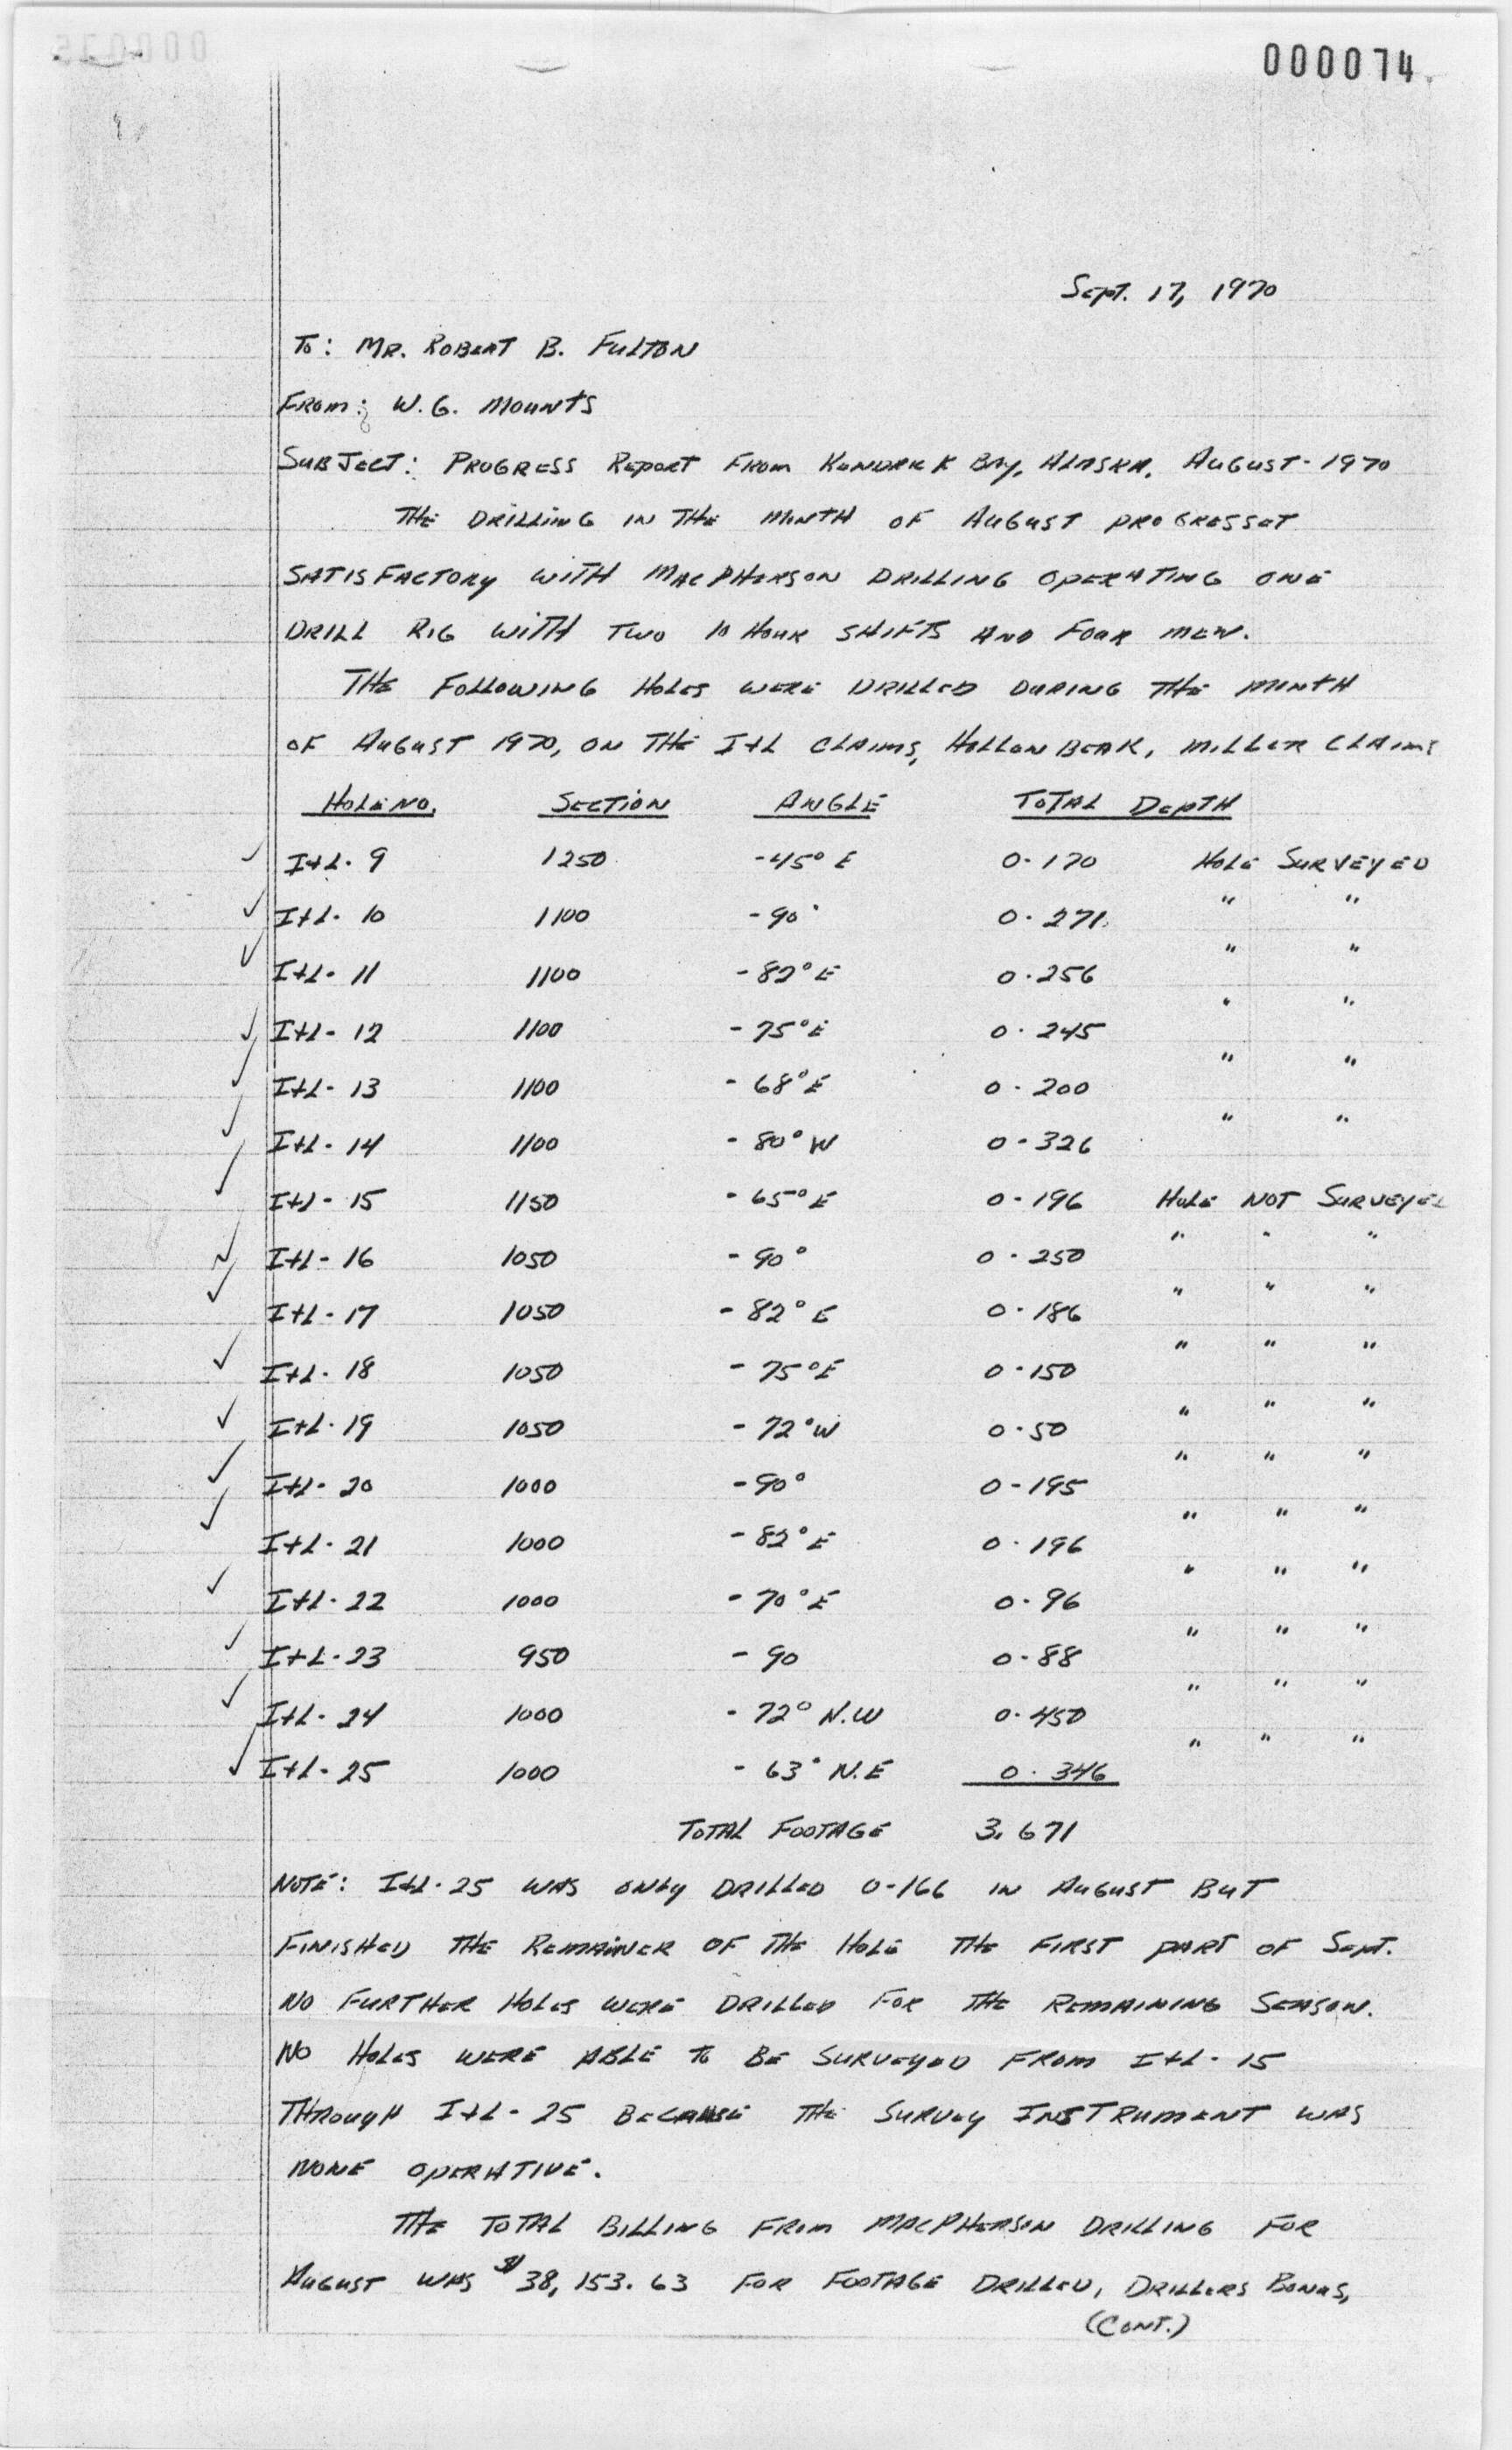 000074
Sept. 17, 1970
To: Mr. Robert B. Fulton
From: W.G. Mounts
Subject: Progress Report From Kendrick Bay, Alaska, August-1970
The drilling in the month of August progresset
satisfactory with MacPherson Drilling operating one
drill rig with two 10 hour shifts and four men.
The following holes were drilled during the month
of August 1970, on the I+L Claims, Hollenbeak, Miller Claims
Hole No. Section Angle Total Depth
✓ I+L-9 1250 -45° E 0-170 Hole Surveyed
✓ I+L-10 1100 -90° 0-271 " "
✓ I+L-11 1100 -82° E 0-256 " "
✓ I+L-12 1100 -75° E 0-245 " "
✓ I+L-13 1100 -68° E 0-200 " "
✓ I+L-14 1100 -80° W 0-326 " "
✓ I+L-15 1150 -65° E 0-196 Hole Not Surveyed
✓ I+L-16 1050 -90° 0-250 " " "
✓ I+L-17 1050 -82° E 0-186 " " "
✓ I+L-18 1050 -75° E 0-150 " " "
✓ I+L-19 1050 -72° W 0-50 " " "
✓ I+L-20 1000 -90° 0-195 " " "
✓ I+L-21 1000 -82° E 0-196 " " "
✓ I+L-22 1000 -70° E 0-96 " " "
✓ I+L-23 950 -90 0-88 " " "
✓ I+L-24 1000 -72° N.W 0-450 " " "
✓ I+L-25 1000 -63° N.E 0-346 " " "
Total Footage 3,671
Note: I+L-25 was only drilled 0-166 in August but
finished the remainer of the hole the first part of Sept.
No further holes were drilled for the remaining season.
No holes were able to be surveyed from I+L-15
through I+L-25 because the survey instrument was
none operative.
The total billing from MacPherson Drilling for
August was $38,153.63 for footage drilled, drillers bonus,
(Cont.)